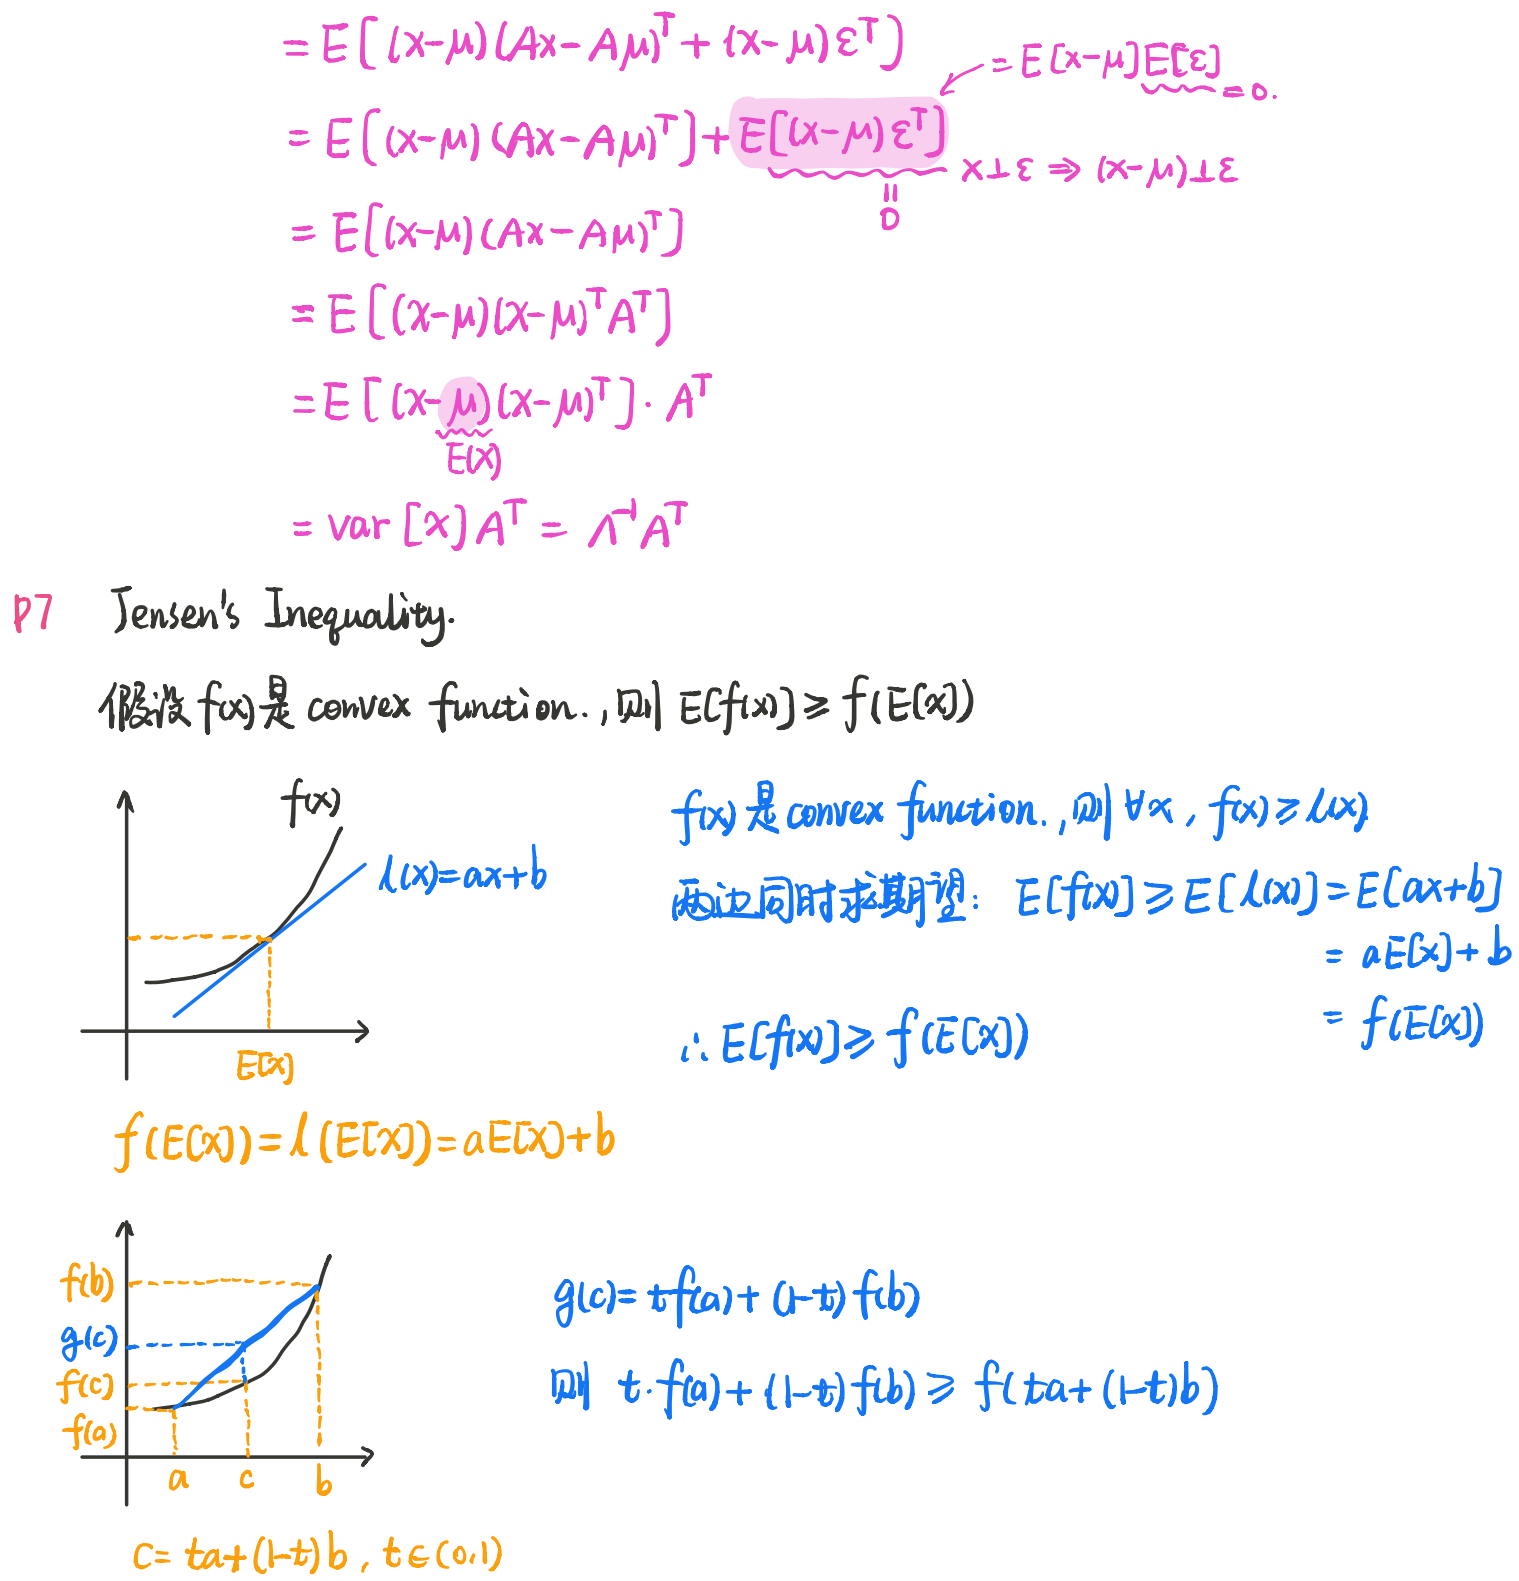 = E[(x-μ)(Ax-Aμ)ᵀ + (x-μ)εᵀ]
= E[x-μ]E[ε] = 0.
= E[(x-μ)(Ax-Aμ)ᵀ] + E[(x-μ)εᵀ]
x⊥ε ⇒ (x-μ)⊥ε
=
0
= E[(x-μ)(Ax-Aμ)ᵀ]
= E[(x-μ)(x-μ)ᵀAᵀ]
= E[(x-μ)(x-μ)ᵀ]·Aᵀ
E(x)
= var[x]Aᵀ = Λ⁻¹Aᵀ
P7 Jensen's Inequality.
假设 f(x) 是 convex function., 则 E[f(x)] ≥ f(E[x])
f(x)
l(x)=ax+b
E[x]
f(x) 是 convex function., 则 ∀x, f(x) ≥ l(x)
两边同时求期望: E[f(x)] ≥ E[l(x)] = E[ax+b]
= aE[x]+b
= f(E[x])
∴ E[f(x)] ≥ f(E[x])
f(E[x]) = l(E[x]) = aE[x]+b
f(b)
g(c)
f(c)
f(a)
a c b
g(c) = tf(a) + (1-t)f(b)
则 t·f(a) + (1-t)f(b) ≥ f(ta+(1-t)b)
c = ta+(1-t)b, t∈(0,1)